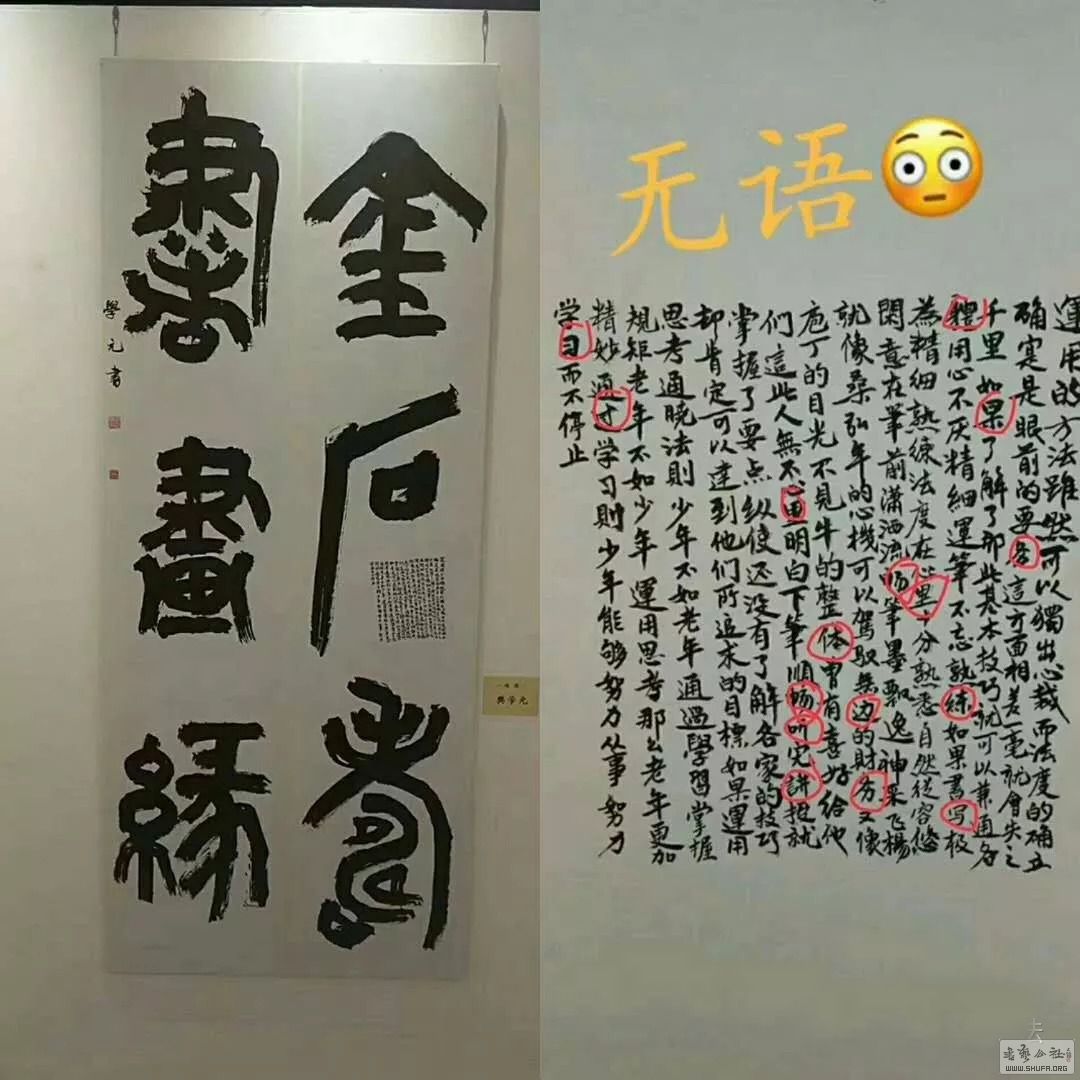 金石壽
書畫緣
學元書
樊学元
无语😳
運用的方法雖然可以獨出心裁而法度的确立
确实是眼前的要务這方面相差一毫就會失之
千里如果了解了那些基本技巧就可以兼通各
種用心不厌精细運筆不忘熟练如果書写极
為精细熟練法度在心里十分熟悉自然從容悠
閑意在筆前潇洒流畅筆墨飘逸神采飞楊
就像桑弘年的心機可以驾驭無边的財务又像
庖丁的目光不見牛的整体曾有喜好给他
们這些人無不通明白下筆順畅听完讲授就
掌握了要点纵使还没有了解各家的技巧
却肯定可以達到他们所追求的目標如果運用
思考通晓法則少年不如老年通過學習掌握
規矩老年不如少年運用思考那么老年更加
精妙通过学习則少年能够努力从事努力
学习而不停止
夫
書藝公社
WWW.SHUFA.ORG